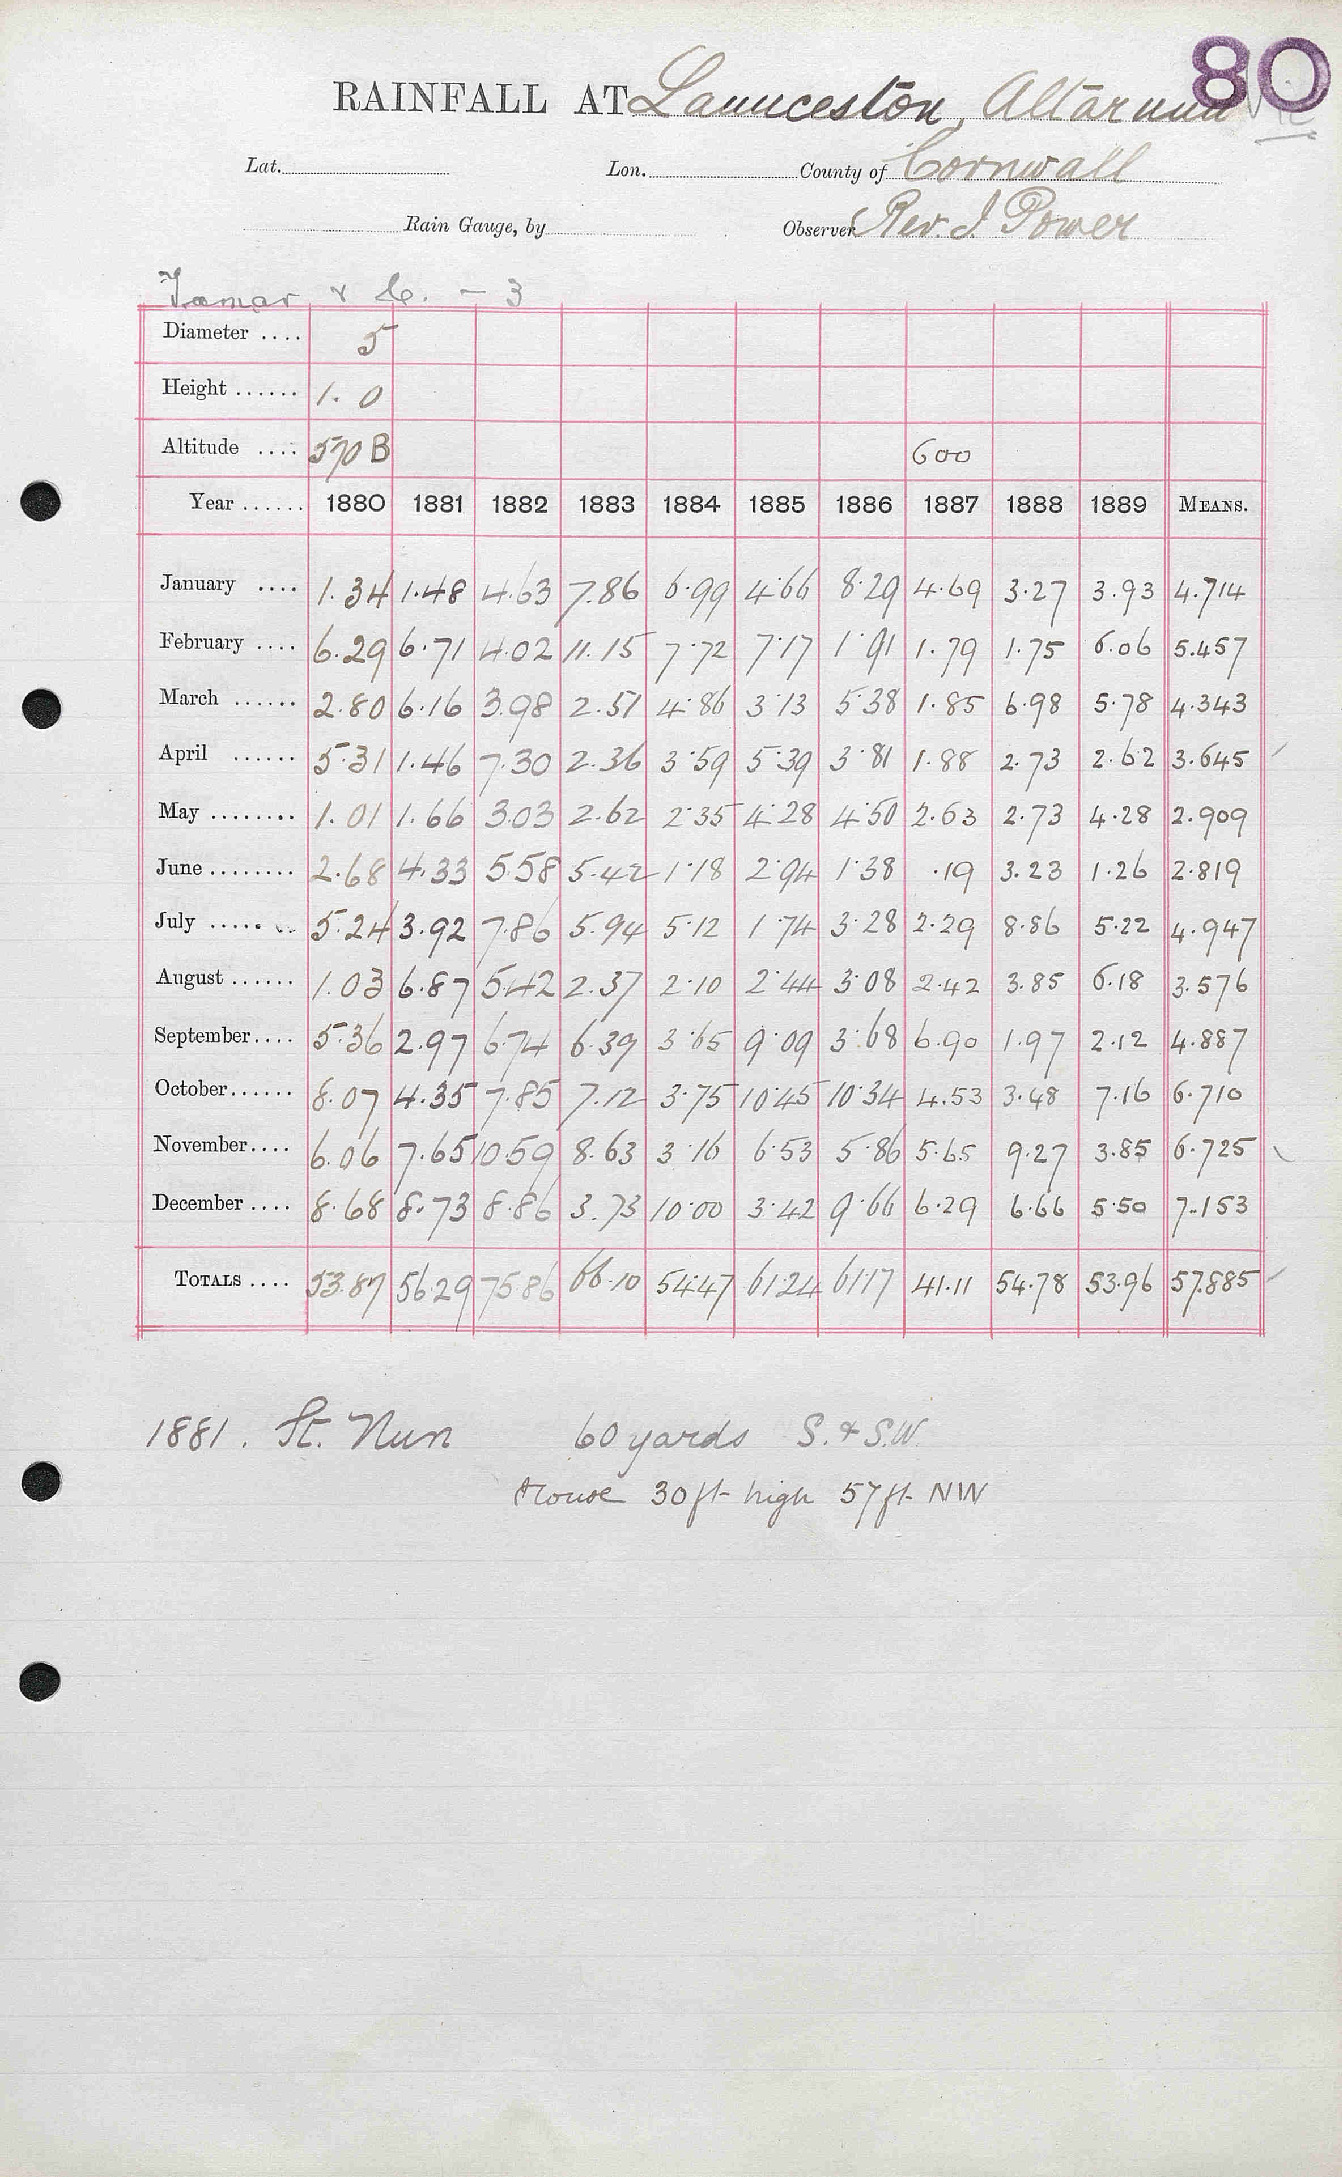 80
RAINFALL AT Launceston, Altarnun Vic
Lat. Lon. County of Cornwall
Rain Gauge, by Observer Rev. J. Power
Tamar & C. - 3
Diameter .... 5
Height ...... 1. 0
Altitude .... 570 B 600
Year ...... 1880 1881 1882 1883 1884 1885 1886 1887 1888 1889 MEANS.
January .... 1.34 1.48 4.63 7.86 6.99 4.66 8.29 4.69 3.27 3.93 4.714
February .... 6.29 6.71 4.02 11.15 7.72 7.17 1.91 1.79 1.75 6.06 5.457
March ...... 2.80 6.16 3.98 2.51 4.86 3.13 5.38 1.85 6.98 5.78 4.343
April ...... 5.31 1.46 7.30 2.36 3.59 5.39 3.81 1.88 2.73 2.62 3.645
May ........ 1.01 1.66 3.03 2.62 2.35 4.28 4.50 2.63 2.73 4.28 2.909
June ........ 2.68 4.33 5.58 5.42 1.18 2.94 1.38 .19 3.23 1.26 2.819
July ........ 5.24 3.92 7.86 5.94 5.12 1.74 3.28 2.29 8.86 5.22 4.947
August ...... 1.03 6.87 5.42 2.37 2.10 2.44 3.08 2.42 3.85 6.18 3.576
September .... 5.36 2.97 6.74 6.39 3.65 9.09 3.68 6.90 1.97 2.12 4.887
October ...... 8.07 4.35 7.85 7.12 3.75 10.45 10.34 4.53 3.48 7.16 6.710
November .... 6.06 7.65 10.59 8.63 3.16 6.53 5.86 5.65 9.27 3.85 6.725
December .... 8.68 8.73 8.86 3.73 10.00 3.42 9.66 6.29 6.66 5.50 7.153
TOTALS .... 53.87 56.29 75.86 66.10 54.47 61.24 61.17 41.11 54.78 53.96 57.885
1881. St. Nun 60 yards S. & S.W.
House 30 ft high 57 ft. NW